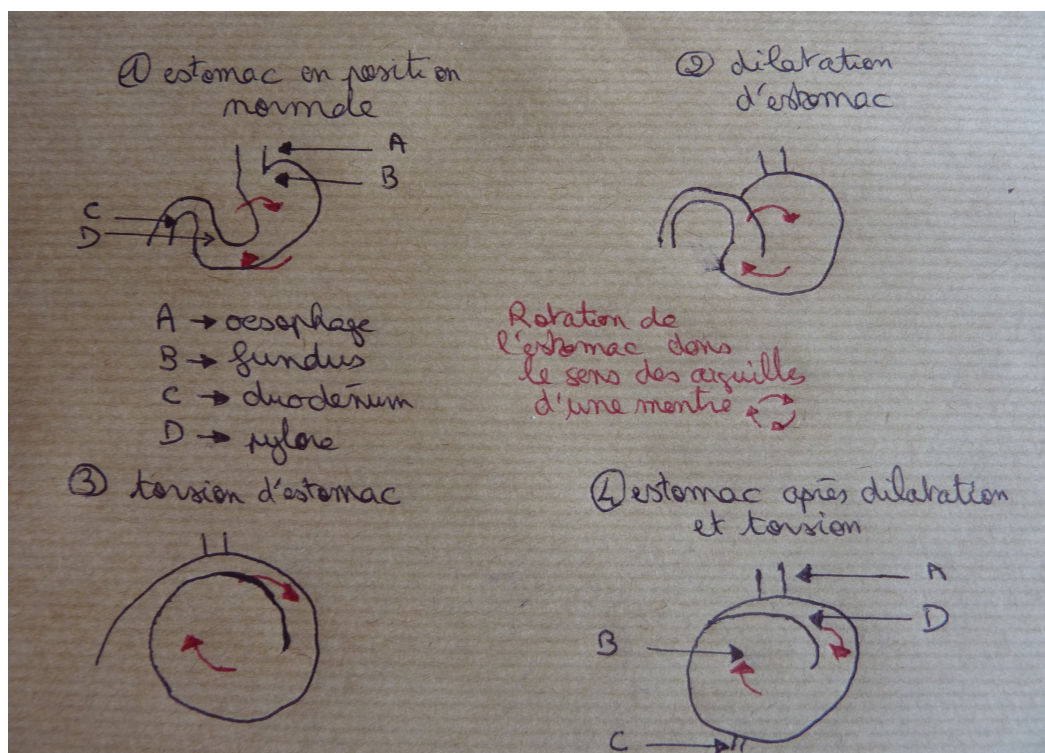 ① estomac en position
normale
A
B
C
D
A → oesophage
B → fundus
C → duodénum
D → pylore
② dilatation
d'estomac
Rotation de
l'estomac dans
le sens des aiguilles
d'une montre
③ torsion d'estomac
④ estomac après dilatation
et torsion
A
D
B
C